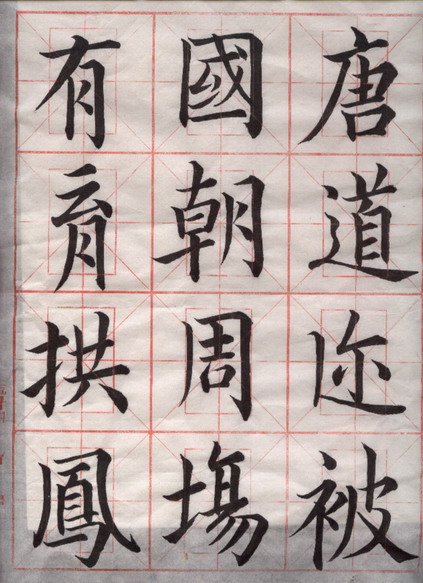 唐道迩被
國朝周場
有育拱鳳